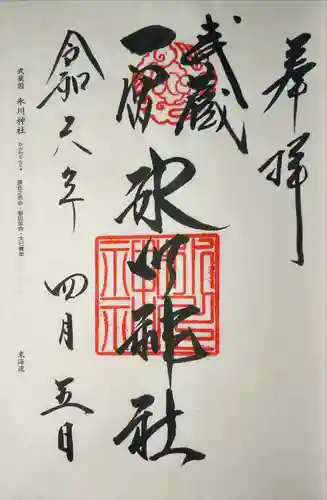 奉拝
武蔵
一宮
氷川神社
令和六年
四月
五日
武蔵國 氷川神社
東海道